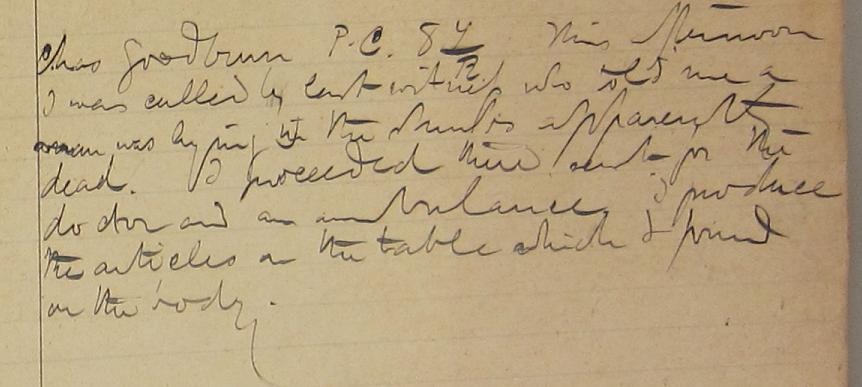 Chas Goodbrun P.C. 84 This afternoon
I was called by last witness who told me a
man was lying in the shrubs apparently
dead. I proceeded there sent for the
doctor and an ambulance. I produce
the articles on the table which I found
on the body.